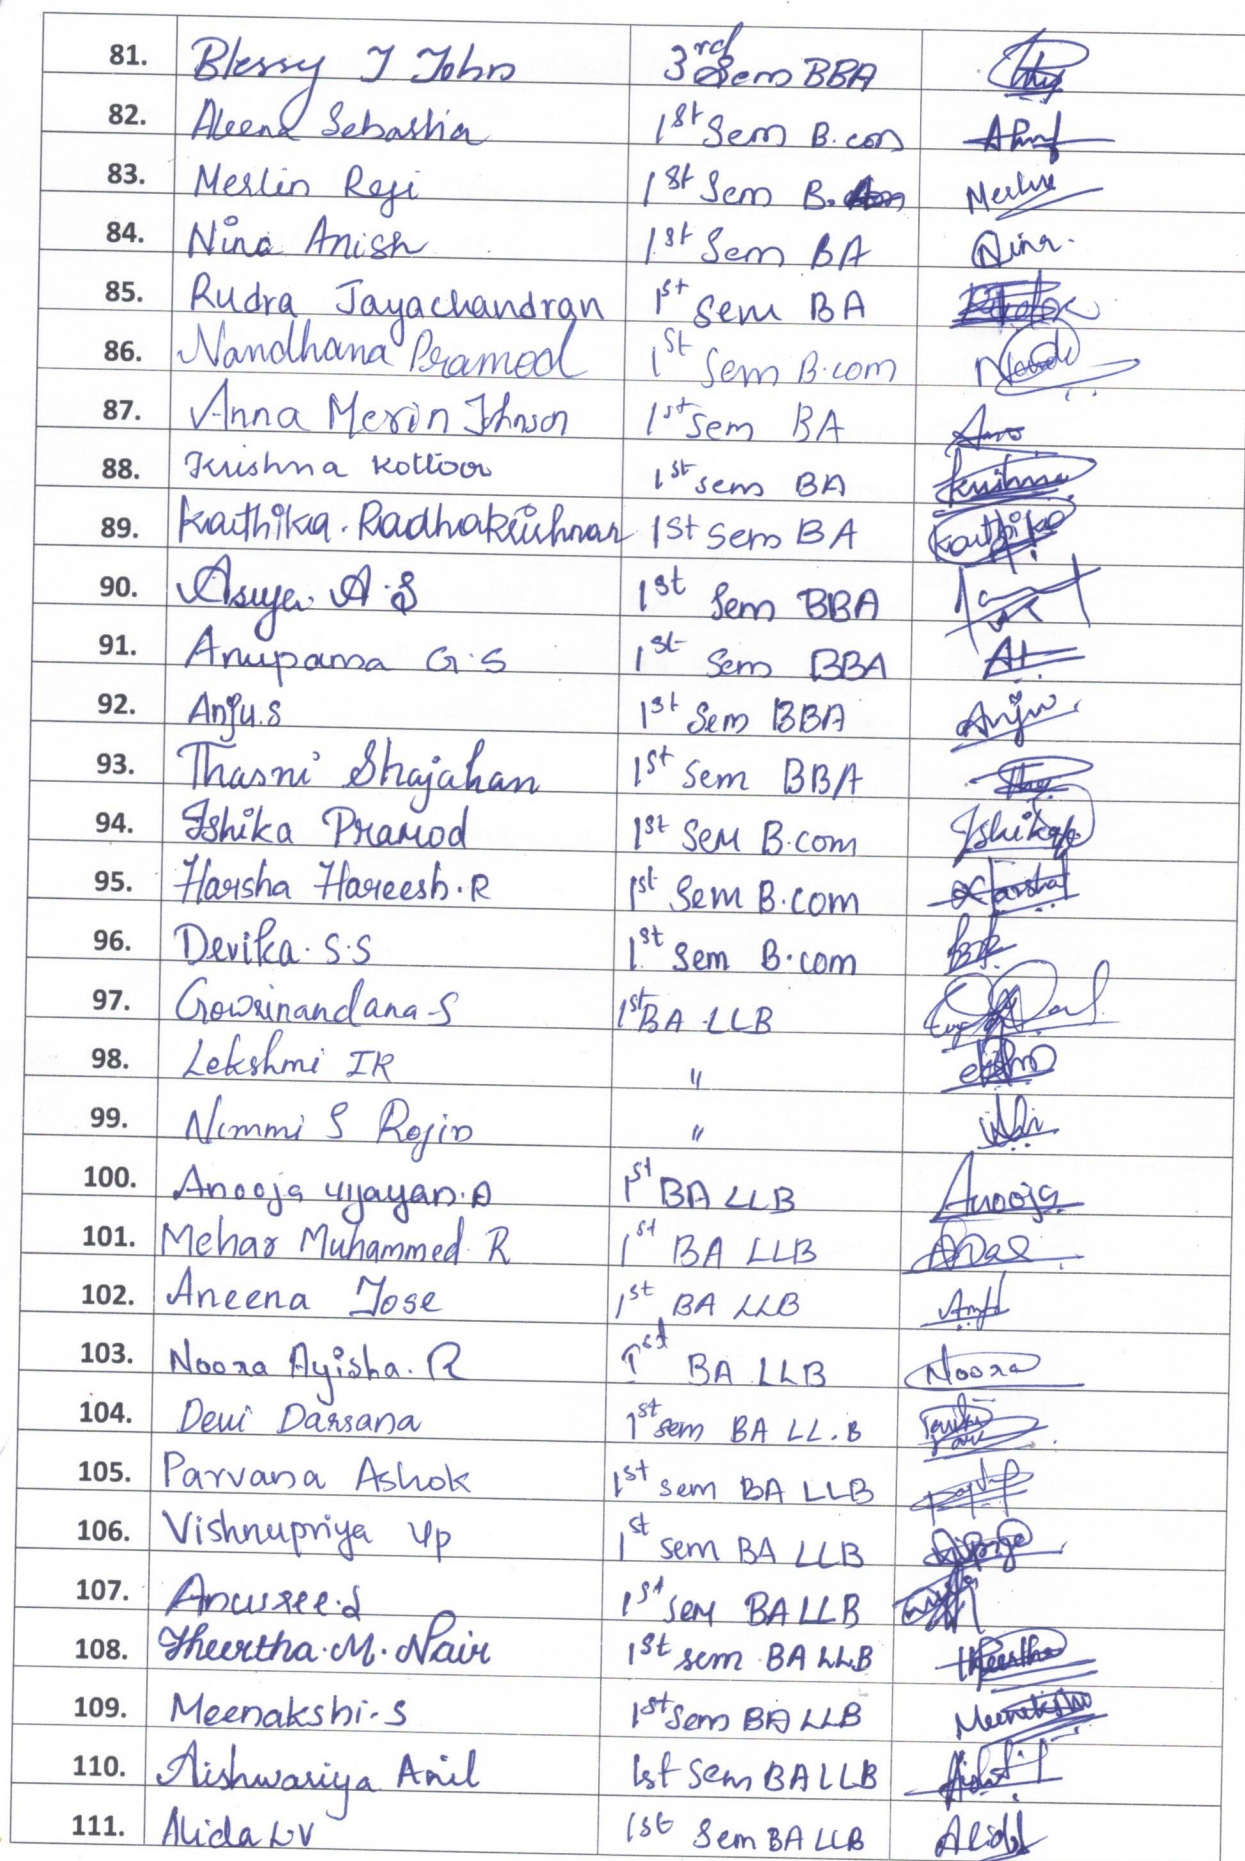 81. Blessy J John 3rd Sem BBA
82. Aleena Sebastia 1st Sem B.com
83. Merlin Reji 1st Sem B. Merlin
84. Nina Anish 1st Sem BA Nina.
85. Rudra Jayachandran 1st Sem BA
86. Nandhana Pramod 1st Sem B.com
87. Anna Merin Johnson 1st Sem BA
88. Krishna Kottoor 1st sem BA Krishna
89. Karthika. Radhakrishnan 1st sem BA Karthika
90. A.S 1st Sem BBA
91. Anupama G.S 1st Sem BBA
92. Anju.S 1st Sem BBA Anju.
93. Thasni Shajahan 1st Sem BBA
94. Ishika Pramod 1st Sem B.com Ishika
95. Harsha Hareesh.R 1st Sem B.com Harsha
96. Devika. S.S 1st Sem B.com
97. Gowrinandana S 1st BA LLB
98. Lekshmi IR "
99. Nimmi S Rojin "
100. Anooja Vijayan.A 1st BA LLB Anooja
101. Mehar Muhammed R 1st BA LLB
102. Aneena Jose 1st BA LLB
103. Noora Ayisha. R 1st BA LLB Noora
104. Devi Darsana 1st sem BA LL.B
105. Parvana Ashok 1st sem BA LLB
106. Vishnupriya Vp 1st sem BA LLB
107. 1st sem BA LLB
108. Theertha.M.Nair 1st sem BA LLB Theertha
109. Meenakshi.S 1st Sem BA LLB Meenakshi
110. Aishwariya Anil 1st Sem BA LLB
111. Alida L.V 1st Sem BA LLB Alida